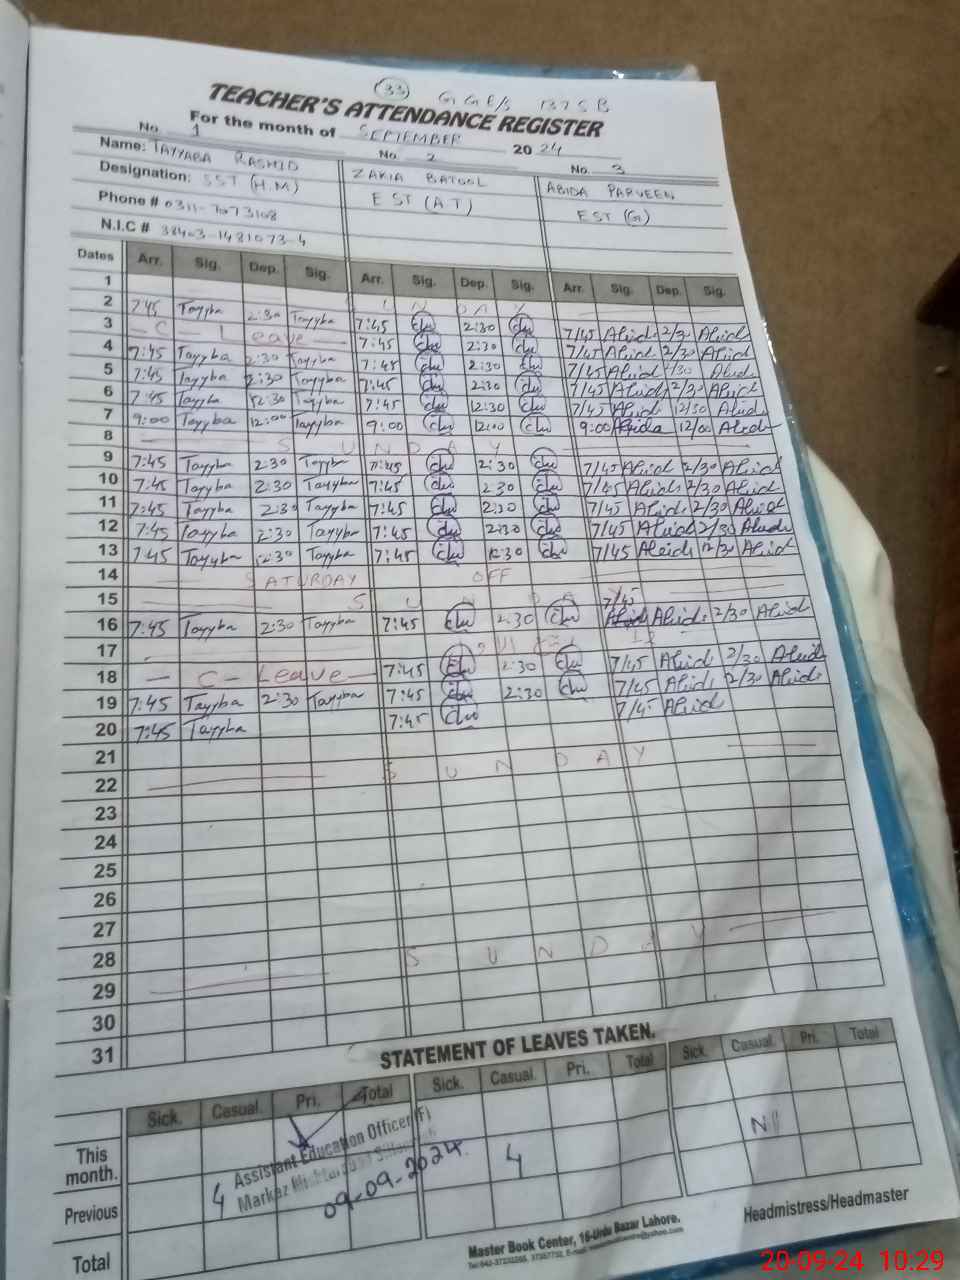 (33) GGE/S 137 SB
TEACHER'S ATTENDANCE REGISTER
For the month of SEPTEMBER 2024
No. 1 No. 2 No. 3
Name: TAYYABA RASHID ZAKIA BATOOL ABIDA PARVEEN
Designation: SST (H.M) EST (A.T) EST (G)
Phone # 0311-7073108
N.I.C # 38403-1481073-4
Dates Arr. Sig. Dep. Sig. Arr. Sig. Dep. Sig. Arr. Sig. Dep. Sig.
1 SUNDAY
2 7:45 Tayyba 2:30 Tayyba 7:45 2:30 7/45 Abid 2/30 Abid
3 C - Leave 7:45 2:30 7/45 Abid 2/30 Abid
4 7:45 Tayyba 2:30 Tayyba 7:45 2:30 7/45 Abid 2/30 Abid
5 7:45 Tayyba 2:30 Tayyba 7:45 2:30 7/45 Abid 2/30 Abid
6 7:45 Tayyba 12:30 Tayyba 7:45 12:30 7/45 Abid 12/30 Abid
7 9:00 Tayyba 12:00 Tayyba 9:00 12:00 9:00 Abida 12/00 Abid
8 SUNDAY
9 7:45 Tayyba 2:30 Tayyba 7:45 2:30 7/45 Abid 2/30 Abid
10 7:45 Tayyba 2:30 Tayyba 7:45 2:30 7/45 Abid 2/30 Abid
11 7:45 Tayyba 2:30 Tayyba 7:45 2:30 7/45 Abid 2/30 Abid
12 7:45 Tayyba 2:30 Tayyba 7:45 2:30 7/45 Abid 2/30 Abid
13 7:45 Tayyba 12:30 Tayyba 7:45 12:30 7/45 Abid 12/30 Abid
14 SATURDAY OFF
15 SUNDAY
16 7:45 Tayyba 2:30 Tayyba 7:45 2:30 7/45 Abid 2/30 Abid
17
18 C - Leave 7:45 2:30 7/45 Abid 2/30 Abid
19 7:45 Tayyba 2:30 Tayyba 7:45 2:30 7/45 Abid 2/30 Abid
20 7:45 Tayyba 7:45 7/45 Abid
21
22 SUNDAY
23
24
25
26
27
28
29 SUNDAY
30
31
STATEMENT OF LEAVES TAKEN.
Sick. Casual. Pri. Total Sick. Casual. Pri. Total Sick. Casual. Pri. Total
This month.
Previous 4 4 Nil
Total
Assistant Education Officer (F)
Markaz
09-09-2024
Headmistress/Headmaster
Master Book Center, 16-Urdu Bazar Lahore.
20-09-24 10:29